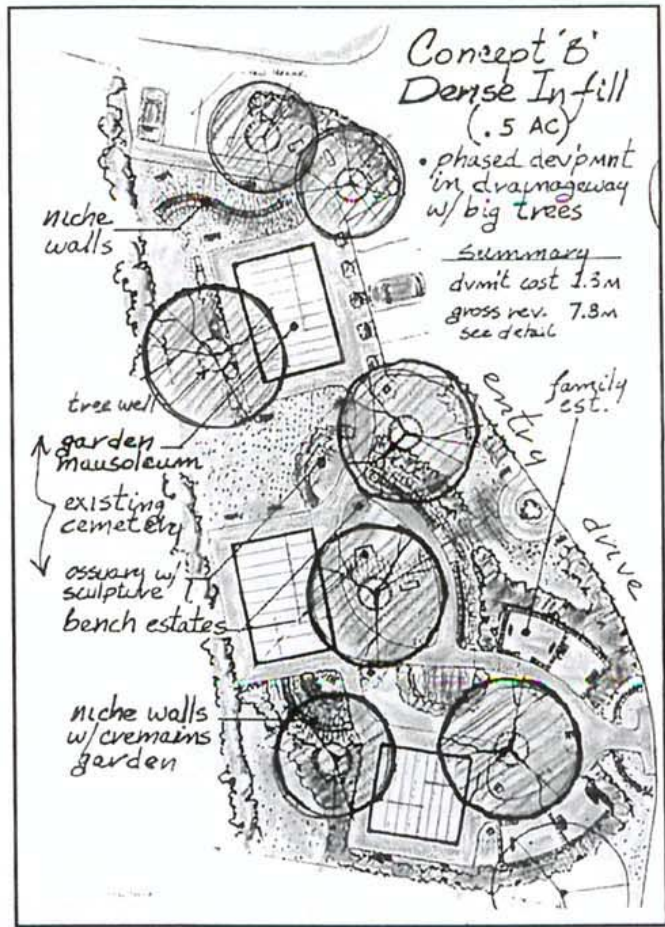 Concept 'B'
Dense Infill
(.5 AC)
• phased dev'pmnt
in drainageway
w/ big trees
summary
dvm't cost 1.3M
gross rev. 7.8M
see detail
niche
walls
tree well
garden
mausoleum
existing
cemetery
ossuary w/
sculpture
bench estates
niche walls
w/cremains
garden
entry
drive
family
est.